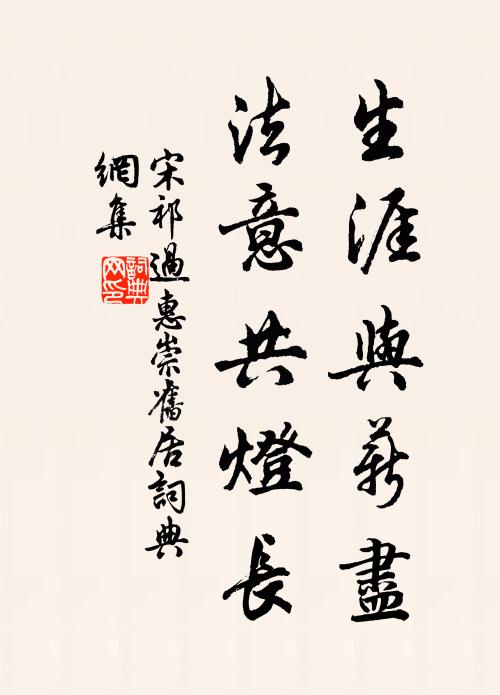 生涯與薪盡
法意共燈長
宋祁過惠崇舊居詞典
網集
詞典網印